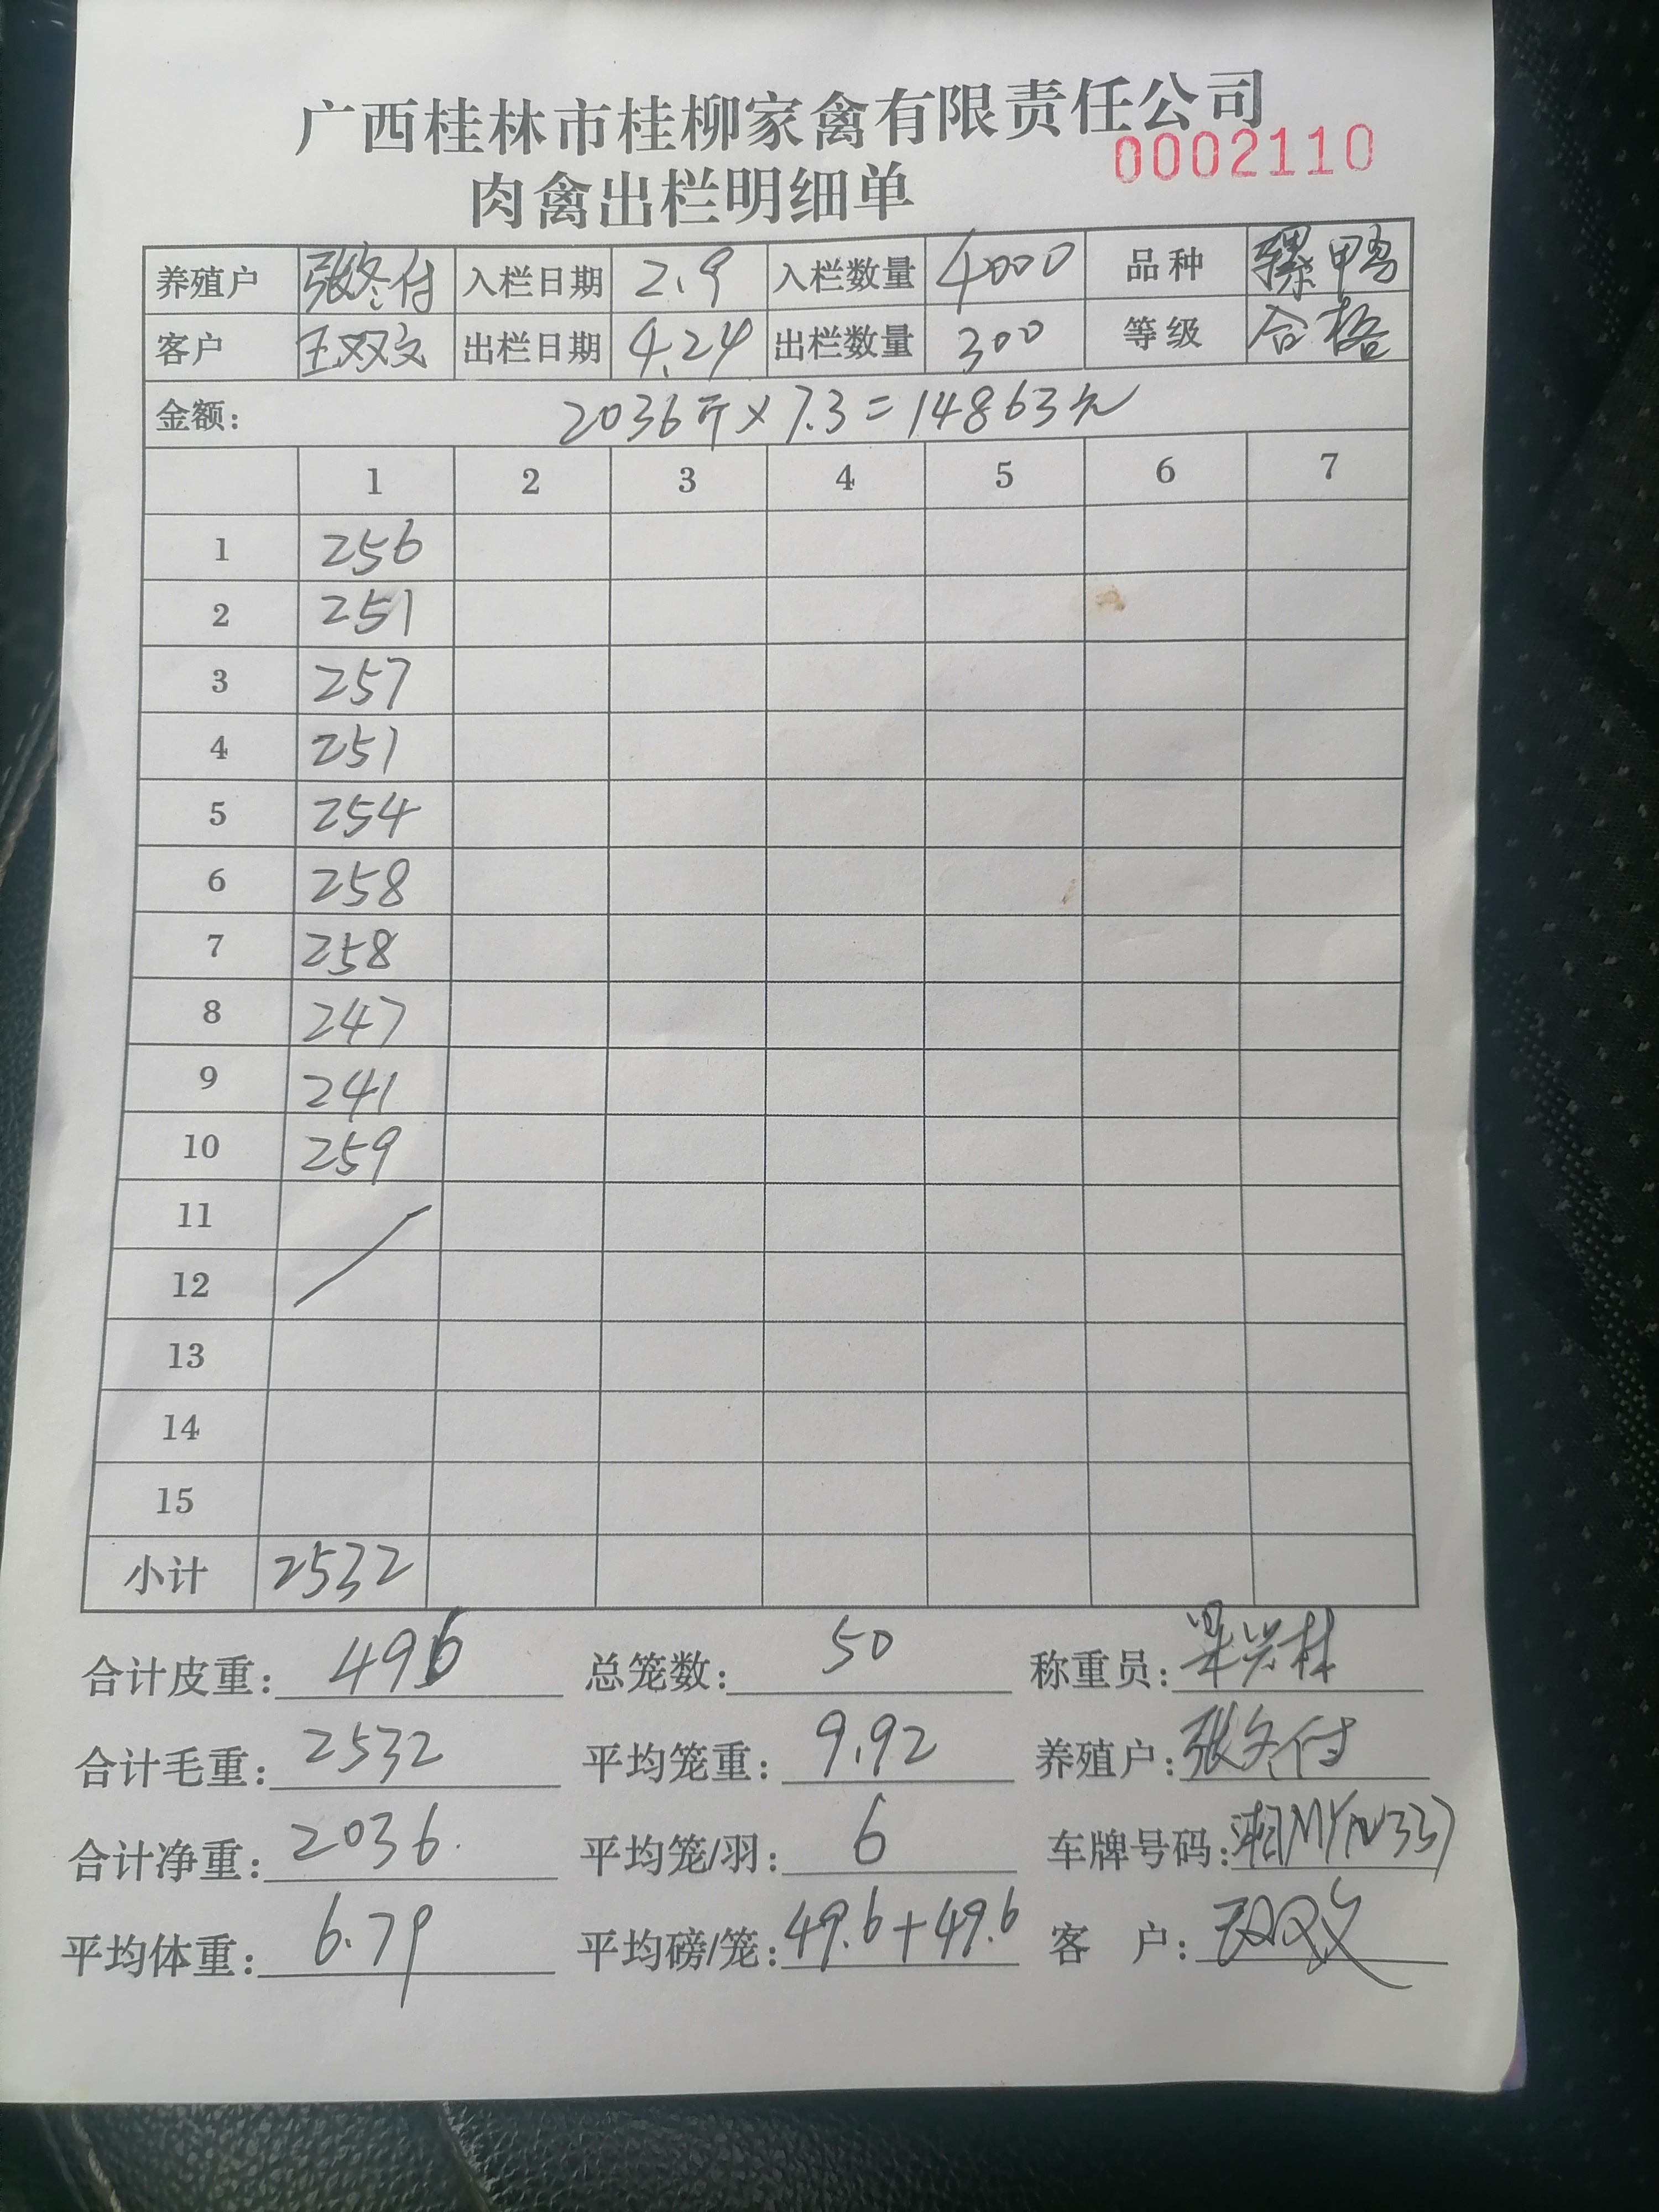 广西桂林市桂柳家禽有限责任公司
0002110
肉禽出栏明细单
养殖户 张冬付 入栏日期 2.9 入栏数量 4000 品种 骡鸭
客户 王双文 出栏日期 4.24 出栏数量 300 等级 合格
金额: 2036斤×7.3=14863元
1 2 3 4 5 6 7
1 256
2 251
3 257
4 251
5 254
6 258
7 258
8 247
9 241
10 259
11
12
13
14
15
小计 2532
合计皮重: 496 总笼数: 50 称重员:
合计毛重: 2532 平均笼重: 9.92 养殖户: 张冬付
合计净重: 2036. 平均笼/羽: 6 车牌号码:
平均体重: 6.79 平均磅/笼: 49.6+49.6 客 户: 王双文